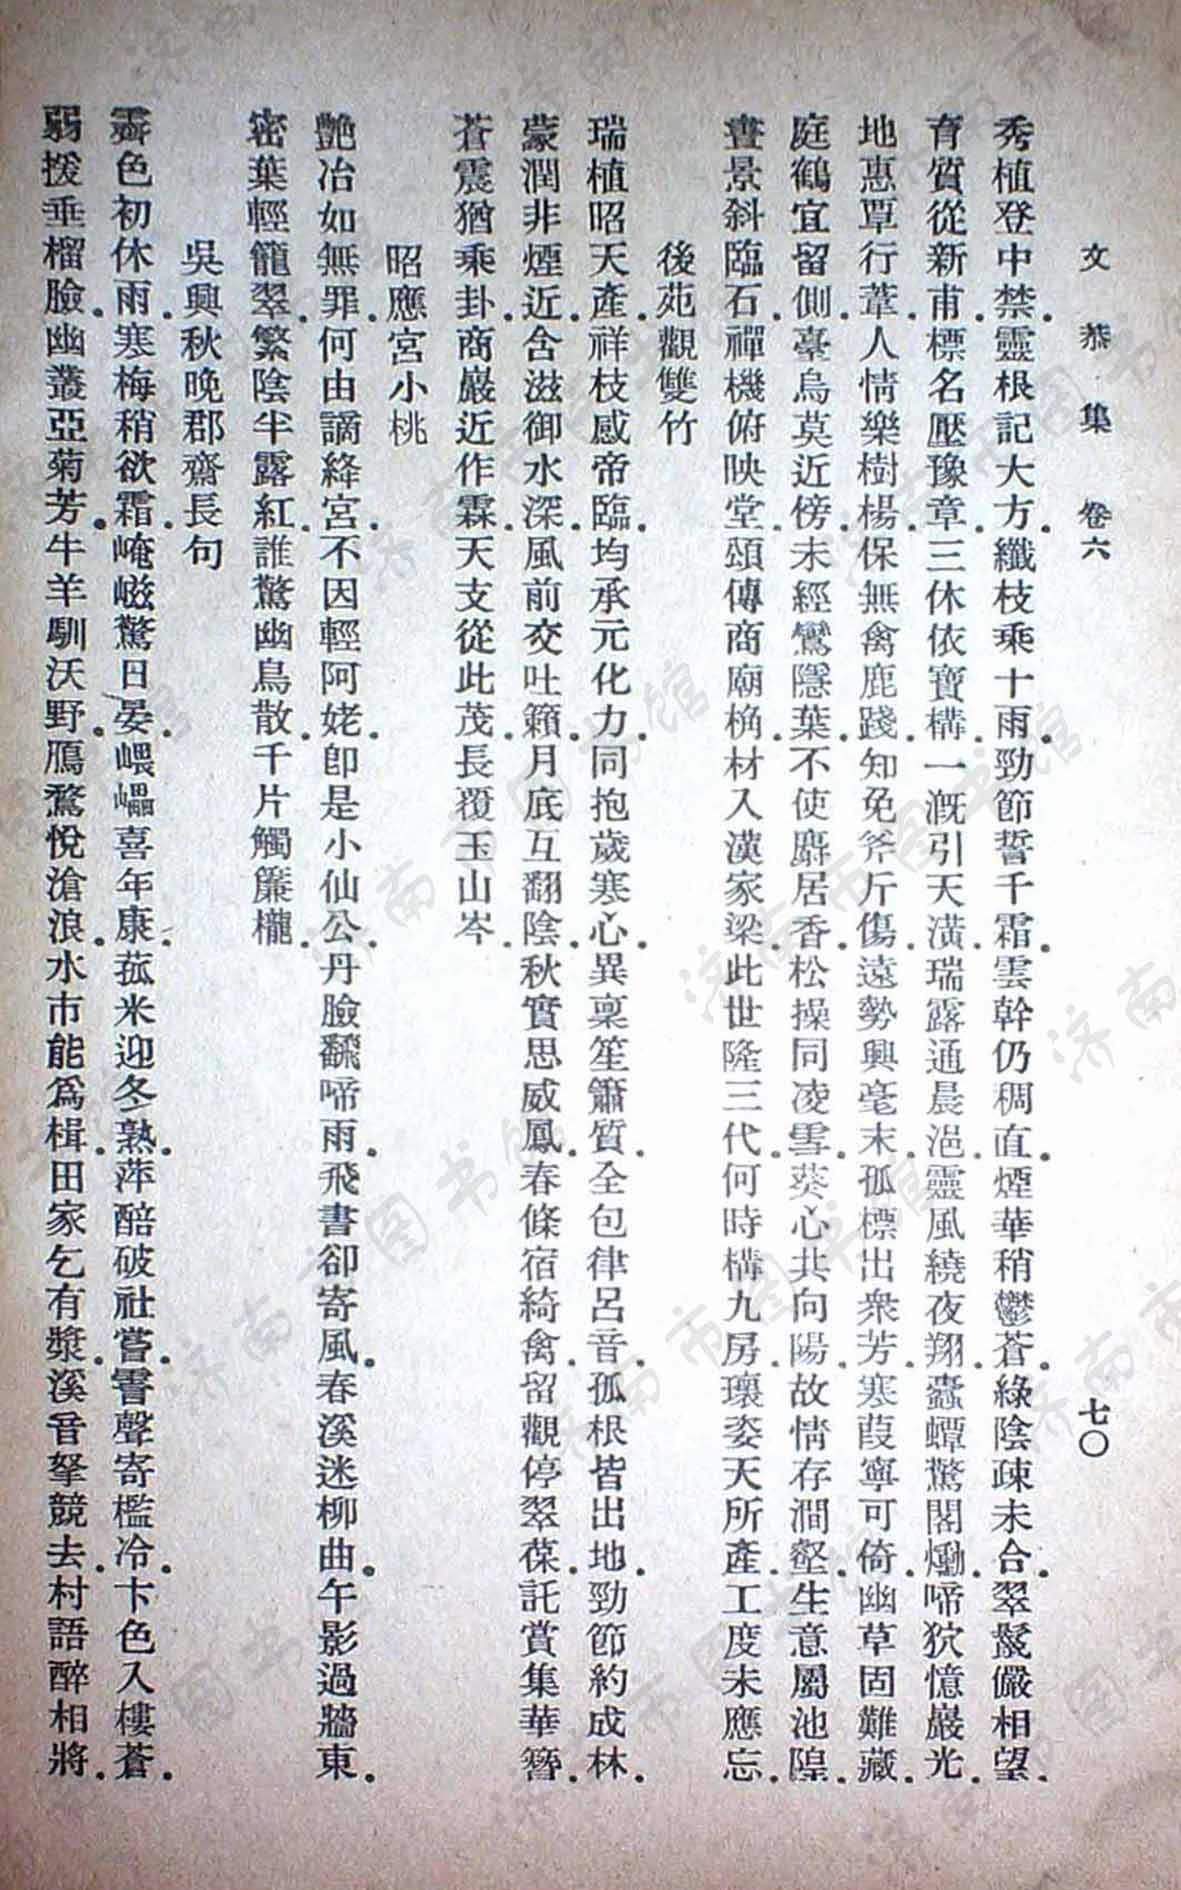 文恭集 卷六 七〇
秀植登中禁.靈根記大方.纖枝乘十雨.勁節誓千霜.雲幹仍稠直.煙華稍鬱蒼.綠陰疎未合.翠鬛儼相望.
育質從新甫.標名壓豫章.三休依寶構.一溉引天潢.瑞露通晨浥.靈風繞夜翔.蠹蟫驚閣爋.啼狖憶巖光.
地惠覃行葦.人情樂樹楊.保無禽鹿踐.知免斧斤傷.遠勢興毫末.孤標出衆芳.寒葭寧可倚.幽草固難藏.
庭鶴宜留側.臺烏莫近傍.未經鸞隱葉.不使麝居香.松操同凌雪.葵心共向陽.故情存澗壑.生意屬池隍.
晝景斜臨石.禪機俯映堂.頌傳商廟桷.材入漢家梁.此世隆三代.何時構九房.瓌姿天所產.工度未應忘.
後苑觀雙竹
瑞植昭天產.祥枝感帝臨.均承元化力.同抱歲寒心.異稟笙簫質.全包律呂音.孤根皆出地.勁節約成林.
蒙潤非煙近.含滋御水深.風前交吐籟.月底互翻陰.秋實思威鳳.春條宿綺禽.留觀停翠葆.託賞集華簪.
蒼震猶乘卦.商巖近作霖.天支從此茂.長覆玉山岑.
昭應宮小桃
艷冶如無罪.何由謫絳宮.不因輕阿姥.卽是小仙公.丹臉飜啼雨.飛書卻寄風.春溪迷柳曲.午影過牆東.
密葉輕籠翠.繁陰半露紅.誰驚幽鳥散.千片觸簾櫳.
吳興秋晚郡齋長句
霽色初休雨.寒梅稍欲霜.崦嵫驚日晏.㟪㠥喜年康.菰米迎冬熟.萍醅破社嘗.霅聲寄檻冷.卞色入樓蒼.
弱援垂榴臉.幽叢亞菊芳.牛羊馴沃野.鴈鶩悅滄浪.水市能爲楫.田家乞有漿.溪音拏競去.村語醉相將.